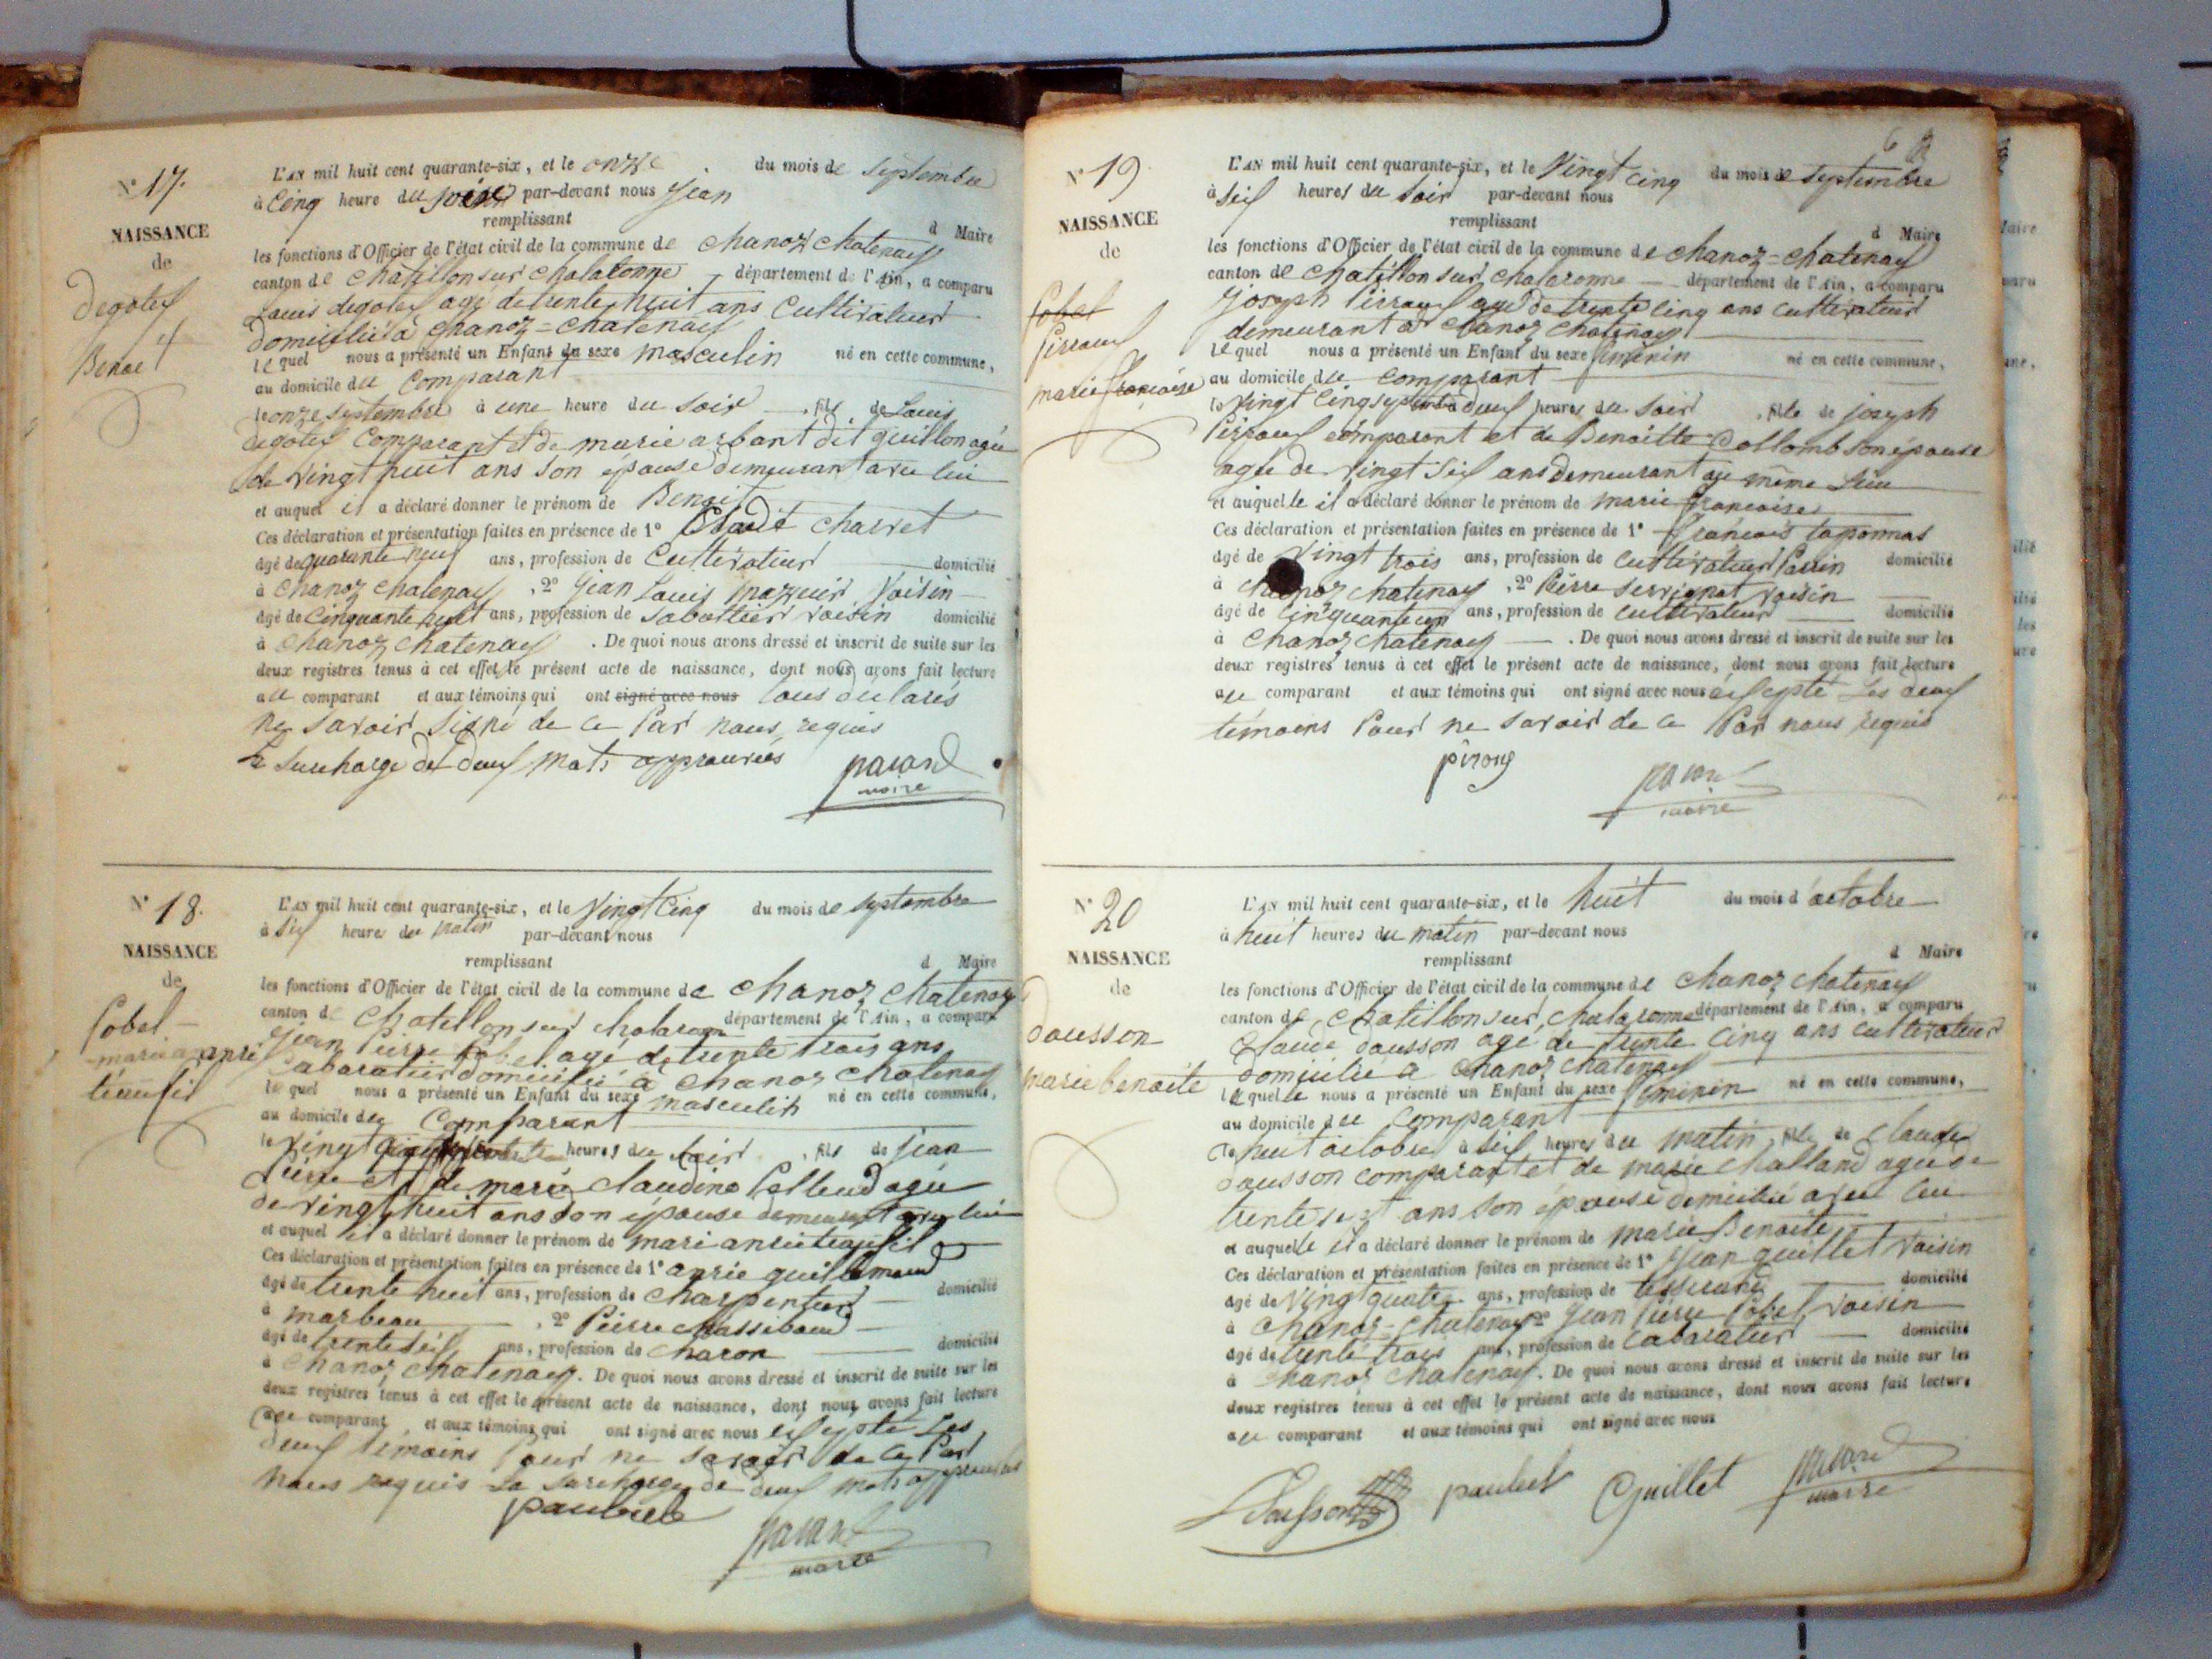 N° 17.
NAISSANCE
de
degoleg
Benoit
L'AN mil huit cent quarante-six, et le onze du mois de septembre
à Cinq heure du soir par-devant nous jean
remplissant
d Maire
les fonctions d'Officier de l'état civil de la commune de chanoz chatenay
canton de chatillon sur chalaronne, département de l'Ain, a comparu
Louis degoleg agé de trente huit ans Cultivateur
domicilié à chanoz=chatenay
lequel nous a présenté un Enfant du sexe masculin né en cette commune,
au domicile du Comparant
le onze septembre à une heure du soir, fils de Louis
degoleg Comparant et de marie arbant dit guillon agée
de vingt huit ans son épouse demeurant avec lui
et auquel il a déclaré donner le prénom de Benoit
Ces déclaration et présentation faites en présence de 1° Claude charvet
âgé de quarante neuf ans, profession de Cultivateur domicilié
à chanoz chatenay, 2° jean Louis mazuir Voisin
âgé de Cinquante huit ans, profession de Sabottier voisin domicilié
à chanoz chatenay. De quoi nous avons dressé et inscrit de suite sur les
deux registres tenus à cet effet le présent acte de naissance, dont nous avons fait lecture
au comparant et aux témoins qui ont signé avec nous tous déclarés
ne savoir signé de ce Par nous requis
la surcharge des deux mots approuvées
pacard
maire
N° 18.
NAISSANCE
de
Pobel
marie anri
téaufil
L'AN mil huit cent quarante-six, et le Vingt Cinq du mois de septembre
à six heures du matin par-devant nous
remplissant
d Maire
les fonctions d'Officier de l'état civil de la commune de chanoz chatenay
canton de chatillon sur chalaronne département de l'Ain, a comparu
jean Pierre Pobel agé de trente trois ans
Cabaratier domicilié à chanoz chatenay
lequel nous a présenté un Enfant du sexe masculin né en cette commune,
au domicile du Comparant
le Vingt heures du soir, fils de jean
Pierre et de marie Claudine Pelleud agée
de vingt huit ans son épouse demeurant avec lui
et auquel il a déclaré donner le prénom de mari anrie teaufil
Ces déclaration et présentation faites en présence de 1° anrie guillemaud
âgé de trente huit ans, profession de charpentier domicilié
à marbeau, 2° Pierre chassibaud
âgé de trente six ans, profession de charon domicilié
à chanoz chatenay. De quoi nous avons dressé et inscrit de suite sur les
deux registres tenus à cet effet le présent acte de naissance, dont nous avons fait lecture
au comparant et aux témoins qui ont signé avec nous exsepté les
deux témoins Pour ne savoir de ce Par
nous requis la surcharge de deux mots approuvés
paubel
pacard
maire
N° 19.
NAISSANCE
de
Pobel
Pirrauf
marie françoise
L'AN mil huit cent quarante-six, et le Vingt cinq du mois de septembre
à six heures du soir par-devant nous
remplissant
d Maire
les fonctions d'Officier de l'état civil de la commune de chanoz=chatenay
canton de chatillon sur chalaronne département de l'Ain, a comparu
joseph Pirrauf agé de trente cinq ans cultivateur
demeurant à chanoz chatenay
lequel nous a présenté un Enfant du sexe feminin né en cette commune,
au domicile du comparant
le Vingt Cinq septembre à deux heures du soir, fille de joseph
Pirrauf comparant et de Benoitte Collomb son épouse
agée de vingt six ans demeurant au même Lieu
et auquelle il a déclaré donner le prénom de marie françoise
Ces déclaration et présentation faites en présence de 1° françois laponnas
âgé de Vingt trois ans, profession de cultivateur Parrin domicilié
à chanoz chatenay, 2° Pierre servignat voisin
âgé de Cinquante un ans, profession de cultivateur domicilié
à Chanoz chatenay. De quoi nous avons dressé et inscrit de suite sur les
deux registres tenus à cet effet le présent acte de naissance, dont nous avons fait lecture
au comparant et aux témoins qui ont signé avec nous exsepté Les deux
témoins Pour ne savoir de ce Par nous requis
piroux
pacard
maire
N° 20
NAISSANCE
de
dausson
marie benoite
L'AN mil huit cent quarante-six, et le huit du mois d'octobre
à huit heures du matin par-devant nous
remplissant
d Maire
les fonctions d'Officier de l'état civil de la commune de chanoz chatenay
canton de chatillon sur chalaronne département de l'Ain, a comparu
Claude dausson agé de trente cinq ans cultivateur
domicilié à chanoz chatenay
lequelle nous a présenté un Enfant du sexe feminin né en cette commune,
au domicile du Comparant
le huit octobre à six heures du matin, fille de claude
dausson comparant et de marie challand agée de
trente sept ans son épouse domicilié avec lui
et auquelle il a déclaré donner le prénom de marie Benoite
Ces déclaration et présentation faites en présence de 1° jean guillet voisin
âgé de Vingt quatre ans, profession de tisserand domicilié
à Chanoz=chatenay 2° jean Pierre Pobel voisin
âgé de trente trois ans, profession de cabaratier domicilié
à chanoz chatenay. De quoi nous avons dressé et inscrit de suite sur les
deux registres tenus à cet effet le présent acte de naissance, dont nous avons fait lecture
au comparant et aux témoins qui ont signé avec nous
Dausson paubel Guillet pacard
maire